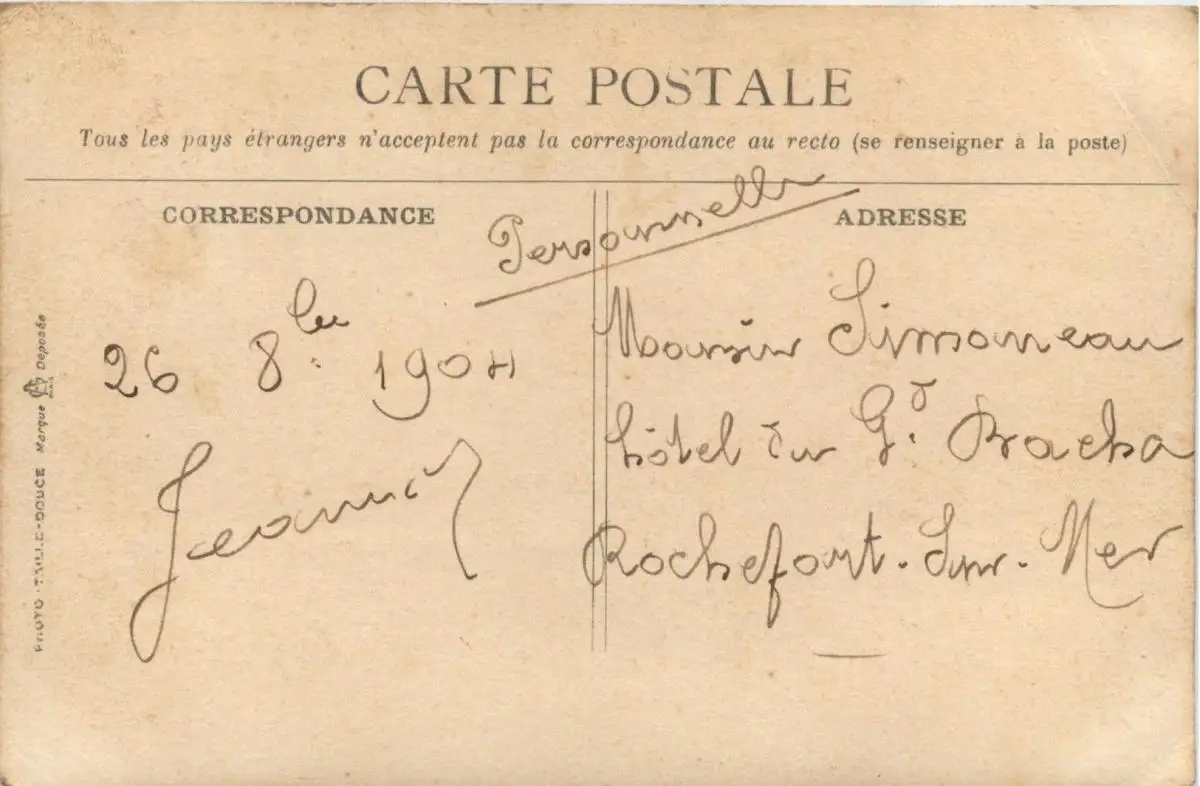 CARTE POSTALE
Tous les pays étrangers n'acceptent pas la correspondance au recto (se renseigner à la poste)
CORRESPONDANCE
Personnelle
ADRESSE
26 8bre 1904
Monsieur Simoneau
hôtel du Gd Bacha
Rochefort-Sur-Mer
PHOTO-TAILLE-DOUCE Marque Déposée